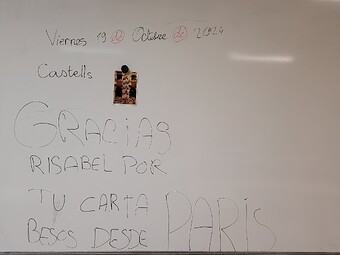 Viernes 19 de Octubre de 2024
Castells
GRACIAS
RISABEL POR
TU CARTA
BESOS DESDE PARIS